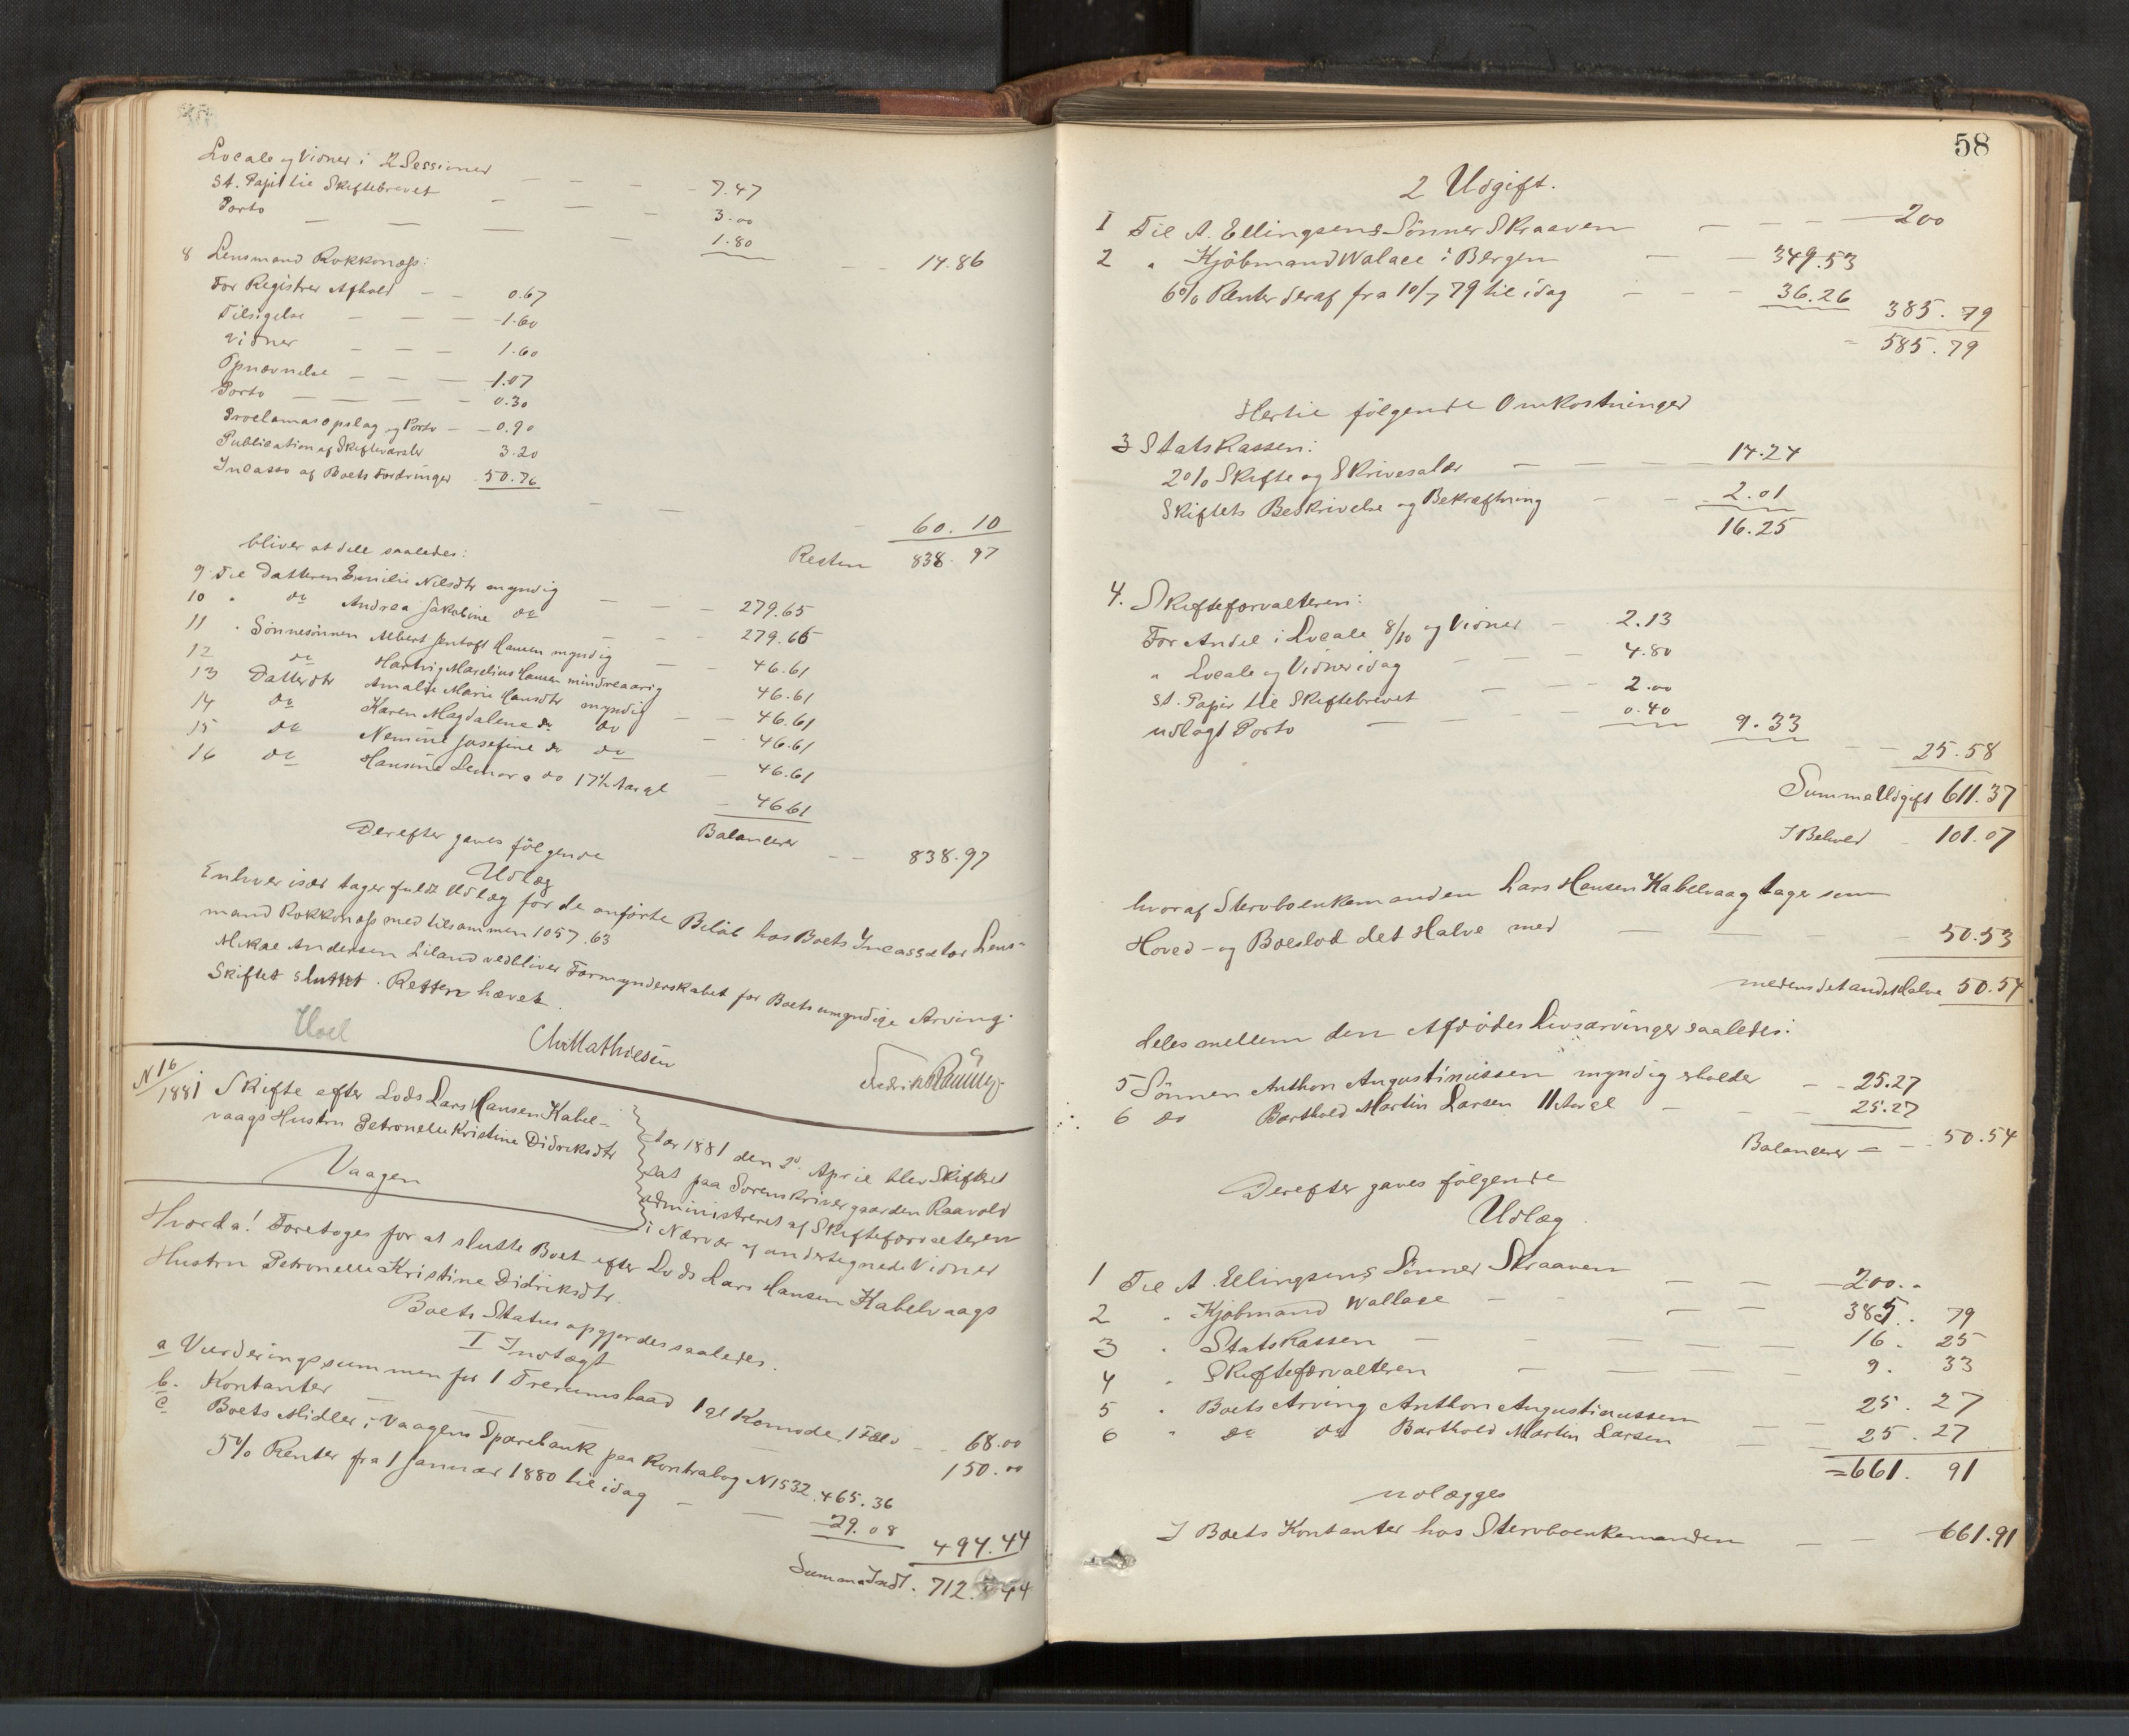 Locale og Vidner i 2 Sessioner — — — 7.47
St. Papir til Skiftebrevet — — — 3.00
Porto — — — — 1.80 — — 14.86
8 Lensmand Rokkonæss:
For Registrer Afhold — — 0.67
Tilsigelse — — — 1.60
Vidner — — — 1.60
Opnævnelse — — — 1.07
Porto — — — — 0.30
Proclamas opslag og Porto — 0.90
Publication af Skiftevarsler 3.20
Incasso af Boets Fordringer 50.76 — — — 60.10
Resten 838.97
bliver at dele saaledes:
9 Til Datteren Emilie Nilsdtr myndig — — — 279.65
10 " do Andrea Jakobine do — — — 279.65
11 " Sønnesønnen Albert Hansen myndig — — 46.61
12 do Hartvig Marelius Hansen mindreaarig 46.61
13 Datterdtr Amalie Marie Hansdtr myndig — — 46.61
14 do Karen Magdalene do do — 46.61
15 do Nemine Josefine do do — 46.61
16 do Hansine Lenora do 17½ Aar gl — 46.61
Balancerer — — 838.97
Derefter gaves følgende
Udlæg
Enhver især tager fuldt Udlæg for de anførte Beløb hos Boets Incassator Lens-
mand Rokkonæss med tilsammen 1057.63
Mikal Andersen Liland vedbliver Formynderskabet for Boets umyndige Arving.
Skiftet sluttet. Retten hævet.
Chr Mathiesen
N 16/1881 Skifte efter Lods Lars Hansen Kabel-
vaags Hustru Petronelle Kristine Didriksdtr
Vaagen
Aar 1881 den 2d April blev Skifteret
sat paa Sorenskrivergaarden Raavold
administreret af Skifteforvalteren
i Nærvær af undertegnede Vidner
Hvorda! Foretoges for at slutte Boet efter Lods Lars Hansen Kabelvaags
Hustru Petronelle Kristine Didriksdtr.
Boets Status opgjordes saaledes.
I Indtægt
a Vurderingssummen for 1 Treromsbaad 1 gl Komode, — — 68.00
b. Kontanter — — — 150.00
c Boets Midler i Vaagens Sparebank paa Kontrabog N 1532 . 465.36
5% Renter fra 1 Januar 1880 til idag — — 29.08 494.44
Summa Indt. 712.44
58
2 Udgift.
1 Til A. Ellingsens Sønner Skraaven — — — 200
2 " Kjøbmand Walace i Bergen — — 349.53
6% Renter deraf fra 10/7 79 til idag — — — 36.26 385.79
= 585.79
Hertil følgende Omkostninger
3 Statskassen:
2% Skifte og Skrivesalær — — — 14.24
Skiftets Beskrivelse og Bekræftning — — 2.01
16.25
4. Skifteforvalteren:
For Andel i Locale 8/10 og Vidner — 2.13
" Locale og Vidner idag — — — 4.80
St. Papir til Skiftebrevet — — — 2.00
udlagt Porto — — — 0.40 9.33 — — 25.58
Summa Udgift 611.37
I Behold — 101.07
hvoraf Stervboenkemanden Lars Hansen Kabelvaag tager som
Hoved- og Boeslod det Halve med — — — 50.53
medens det andet Halve 50.54
deles mellem den Afdødes Livsarvinger saaledes:
5 Sønnen Anthon Augustinussen myndig erholder — — 25.27
6 do Barthold Martin Larsen 11 Aar gl — — — 25.27
Balancerer — — 50.54
Derefter gaves følgende
Udlæg.
1 Til A. Ellingsens Sønner Skraaven — — — 200..
2 " Kjøbmand Wallace — — — 385.79
3 " Statskassen — — — — 16.25
4 " Skifteforvalteren — — — 9.33
5 " Boets Arving Anthon Augustinussen — — 25.27
6 " do do Barthold Martin Larsen — — 25.27
= 661.91
udlægges
I Boets Kontanter hos Stervboenkemanden — — 661.91